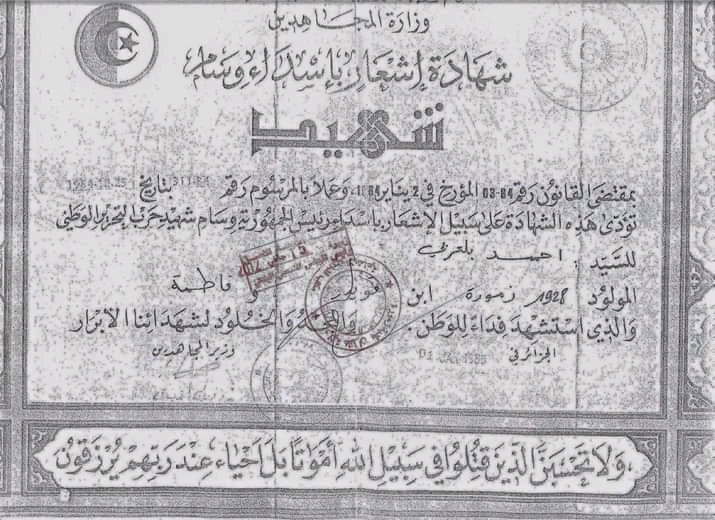 وزارة المجاهدين
شهادة إشعار بإسداء وسام
شهيد
بمقتضى القانون رقم 84-03 المؤرخ في 2 يناير 1984، وعملا بالمرسوم رقم 84-311 بتاريخ 1984-10-25
تؤدى هذه الشهادة على سبيل الإشعار بإسداء رئيس الجمهورية وسام شهيد حرب التحرير الوطني
للسيد : احمد بلعربي
المولود 1928 زمورة ابن قويدر و فاطمة
والذي استشهد فداء للوطن. والمجد والخلود لشهدائنا الأبرار
الجزائر في 01 JAN 1985 وزير المجاهدين
ولا تحسبن الذين قتلوا في سبيل الله أمواتا بل أحياء عند ربهم يرزقون